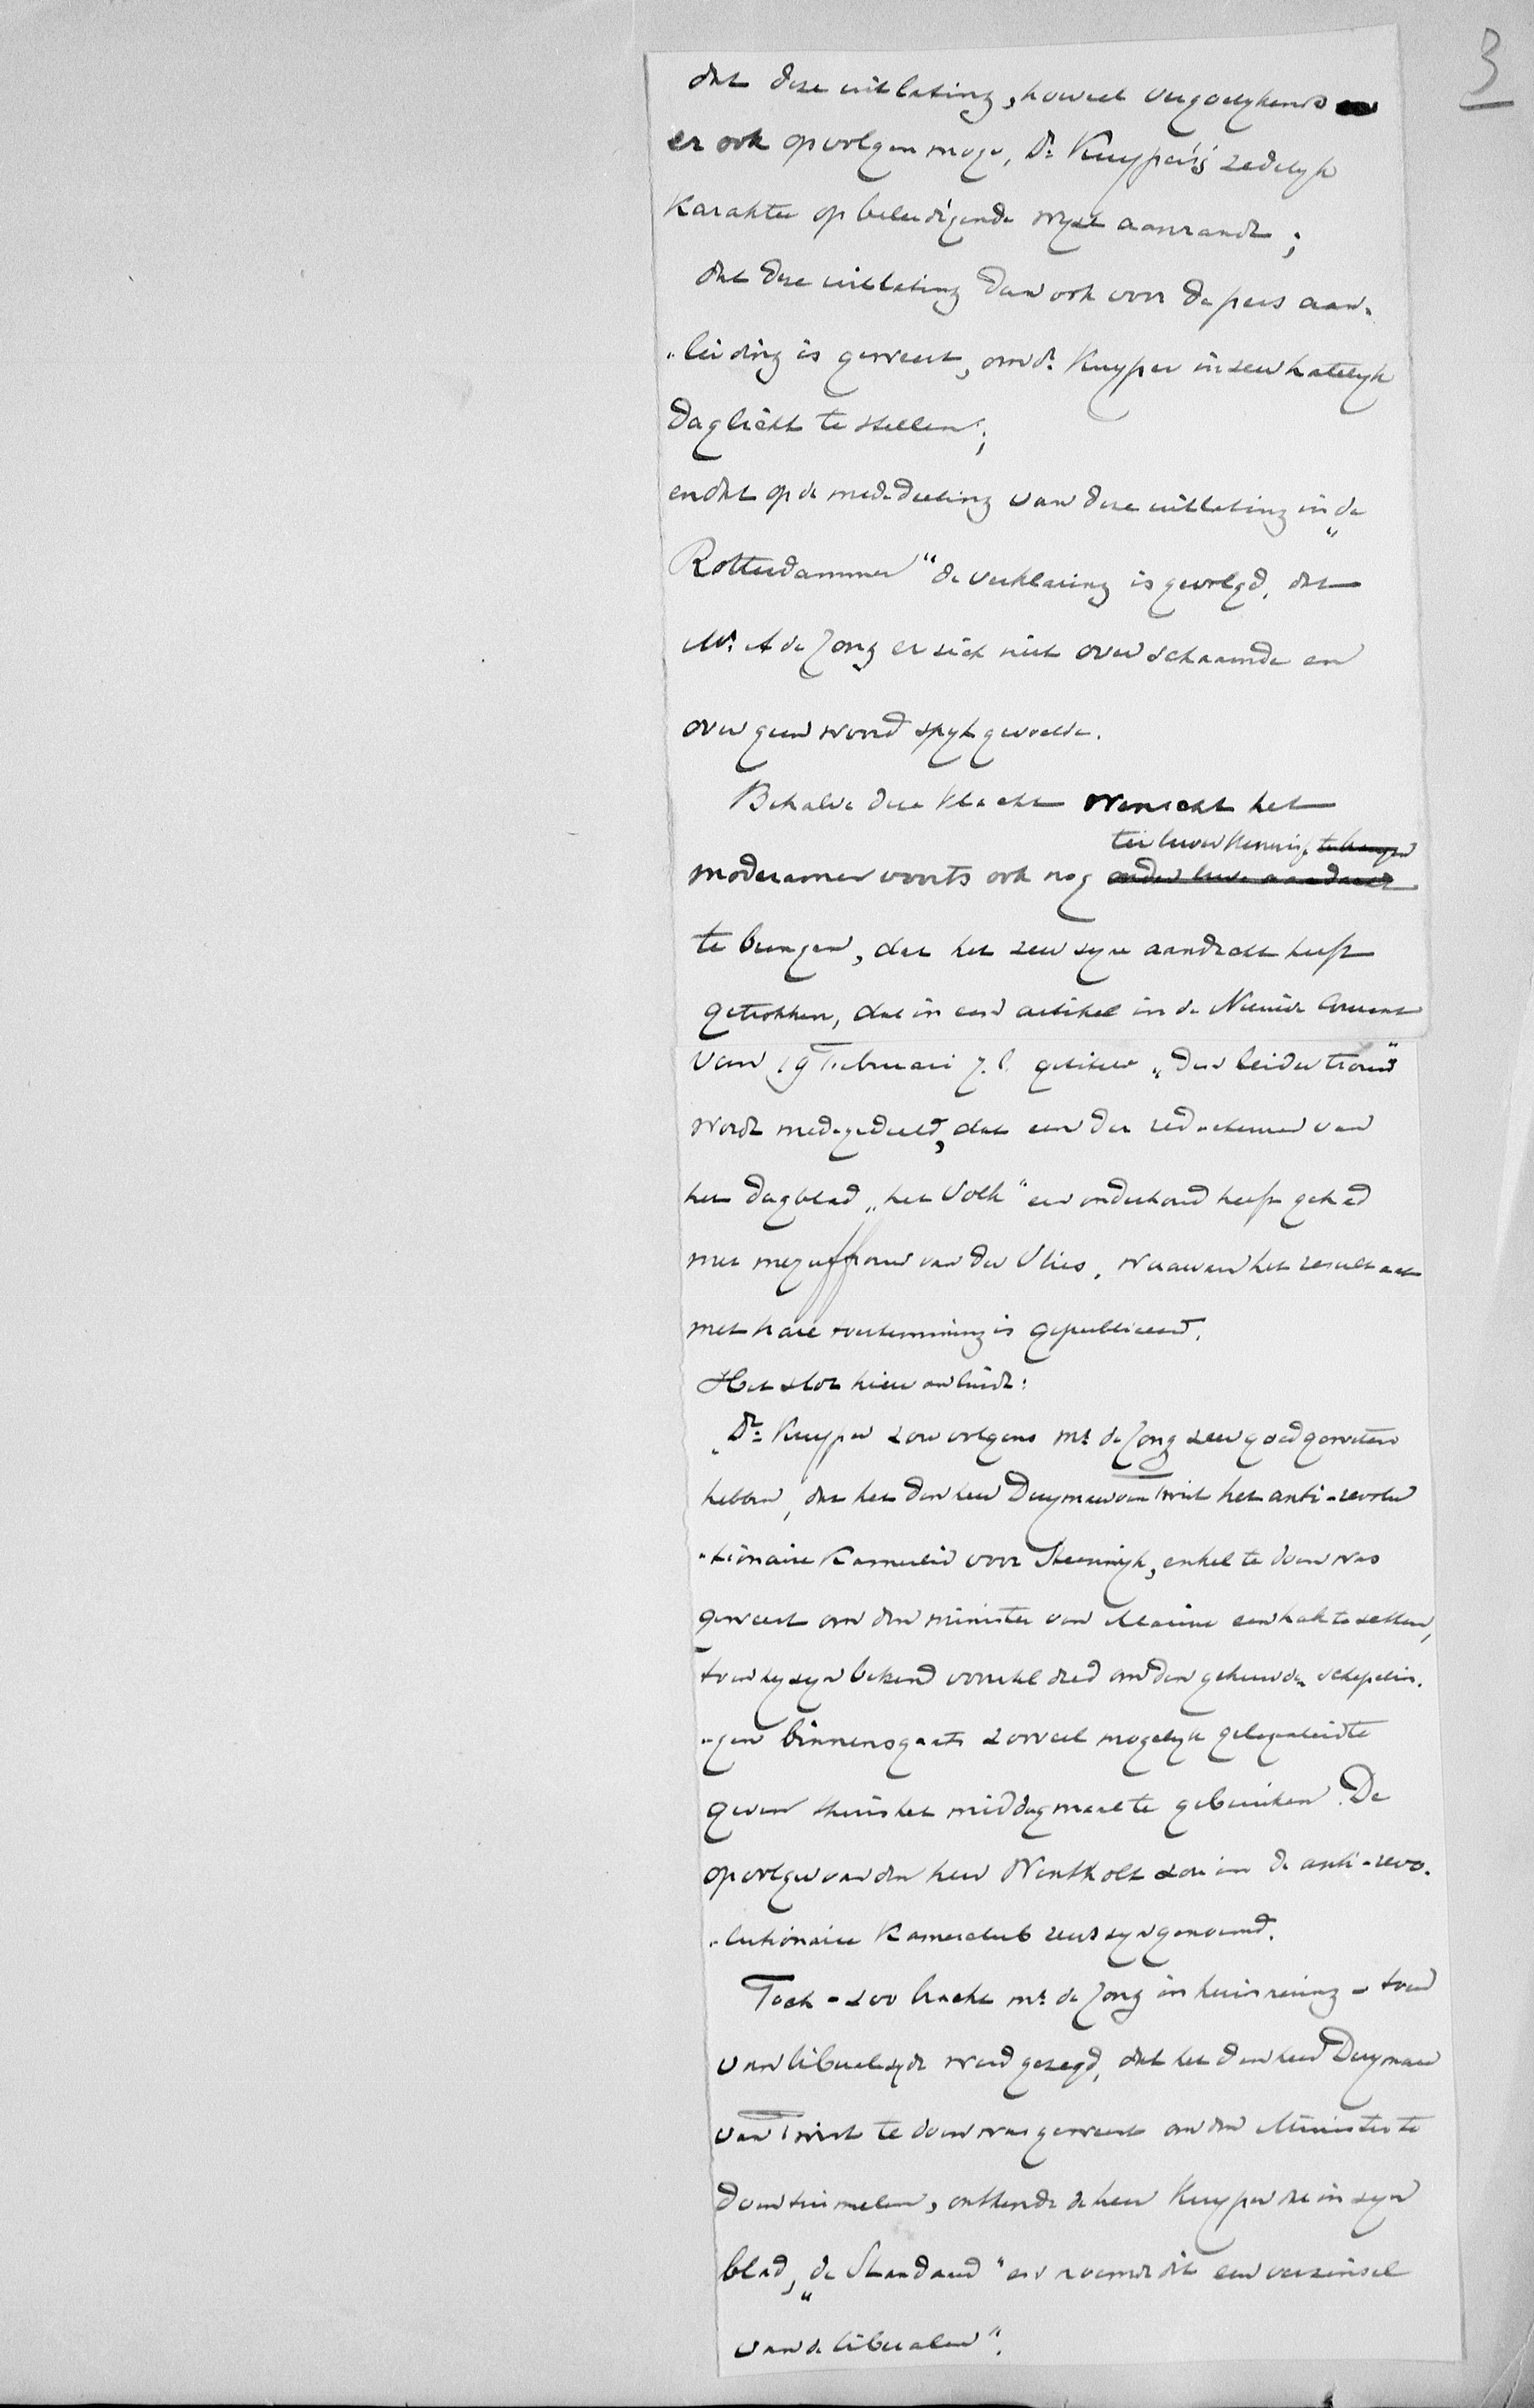 3
dat deze uitlating, hoewel vergoelykends
er ook op volgen moge, Dr. Kuyper's zedelyk
karakter op beleedigende wyze aanrandt;
dat deze uitlating dan ook voor de pers aan-
"leiding is geweest, om Dr. Kuyper in zeer hatelyk
daglicht te stellen;
en dat op de mededeeling van deze uitlating in "de
Rotterdammer" de verklaring is gevolgd, dat
Mr. A de Jong er zich niet over schaamde en
over geen woord spyt gevoelde.
Behalve deze klacht wenscht het
ter Uwer kennis te brengen
moderamen voorts ook nog onder Uwe aandacht
te brengen, dat het zeer zyne aandacht heeft
getrokken, dat in een artikel in de Nieuwe Courant
van 19 Februari j.l. getiteld "Der leider trouw"
wordt medegedeeld, dat een der redacteuren van
het dagblad "het Volk" een onderhoud heeft gehad
met mejuffrouw van der Vlies, waarvan het resultaat
met hare toestemming is gepubliceerd.
Het slot hiervan luidt:
"Dr. Kuyper zou volgens Mr. de Jong zeer goed geweten
hebben, dat het den heer Duymaer van Twist het anti-revolu
"tionaire Kamerlid voor Steenwyk, enkel te doen was
geweest om den minister van Marine een hak te zetten,
toen hy zyn bekend voorstel deed om den gehuwden schepelin-
"gen binnensgaats zooveel mogelyk gelegenheid te
geven thuis het middagmaal te gebruiken. De
opvolger van den heer Wentholt zou in de anti-revo-
"lutionaire Kamerclub reeds zyn genoemd.
Toch - zoo bracht Mr. de Jong in herinnering - toen
van liberale zyde werd gezegd, dat het den heer Duymaer
van Twist te doen was geweest om den Minister te
doen tuimelen, ontkende de heer Kuyper dit in zyn
blad, "de Standaard" en noemde dit een verzinsel
van de liberalen".